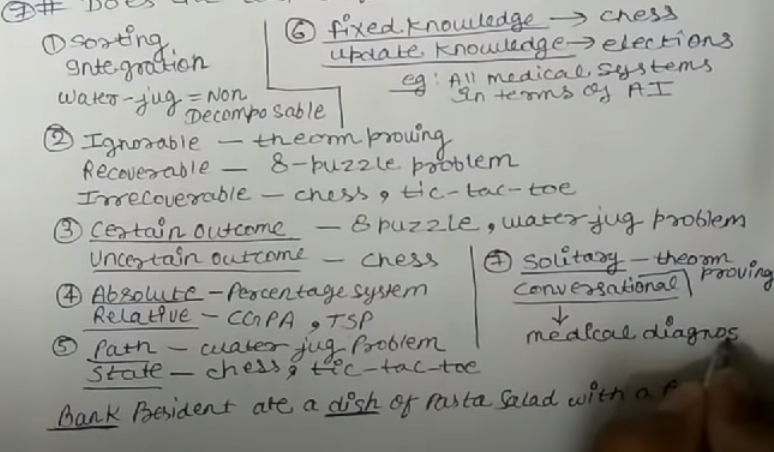 ⑦ # Does
① Sorting
Integration
Water-jug = Non
Decomposable
⑥ fixed knowledge → chess
update knowledge → elections
eg: All medical systems
In terms of AI
② Ignorable - theorm prouing
Recoverable - 8-puzzle problem
Irrecoverable - chess, tic-tac-toe
③ Certain outcome - 8 puzzle, water jug problem
Uncertain outcome - chess
④ Absolute - Percentage system
Relative - CGPA, TSP
⑤ Path - water jug Problem
State - chess, tic-tac-toe
⑦ Solitary - theorm
proving
conversational
↓
medical diagnos
Bank Besident ate a dish of Pasta Salad with a